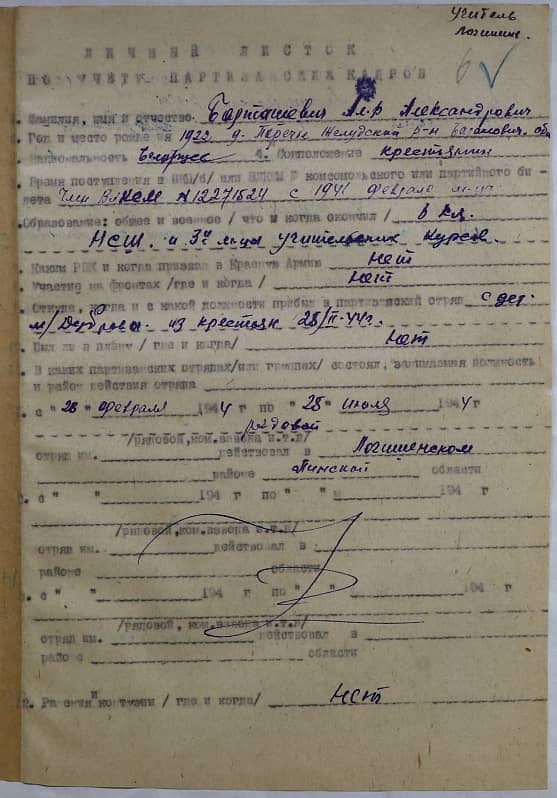 Учитель
Логишин.
6
ЛИЧНЫЙ ЛИСТОК
ПО УЧЕТУ ПАРТИЗАНСКИХ КАДРОВ
. Фамилия, имя и отчество Барташевич Ал-р Александрович
Год и место рождения 1923, д. Перечь Желудский р-н Баранович. обл
Национальность Белорусс 4. Соцположение крестьянин
. Время поступления в ВКП/б/ или ВЛКСМ № комсомольского или партийного би-
лета Член ВЛКСМ №12271524 с 1941 февраля м-ца
. Образование: общее и военное / что и когда окончил / 6 кл.
НСШ. и 3х м-ца учительских курсов.
. Каким РВК и когда призван в Красную Армию Нет
. Участие на фронтах /где и когда / Нет
. Откуда, когда и с какой должности прибыл в партизанский отряд с дер.
м/Дуброва. из крестьян 28/II-44г.
. Был ли в плену / где и когда/ Нет
. В каких партизанских отрядах/или группах/ состоял, занимаемая должность
и район действия отряда
. с "28" февраля 1944 по "28" июля 1944
рядовой
/рядовой,ком.взвода и.т.п/
отряд им. действовал в Логишенском
районе Пинской области
. с " " 194 г по " " 194 г
/рядовой,ком.взвода и.т.п/
отряд им. действовал в
районе области
. с " " 194 г по " " 194 г
/рядовой, ком.взвода и.т.п/
отряд им. действовал в
районе области
2. Ранения и контузии / где и когда/ Нет